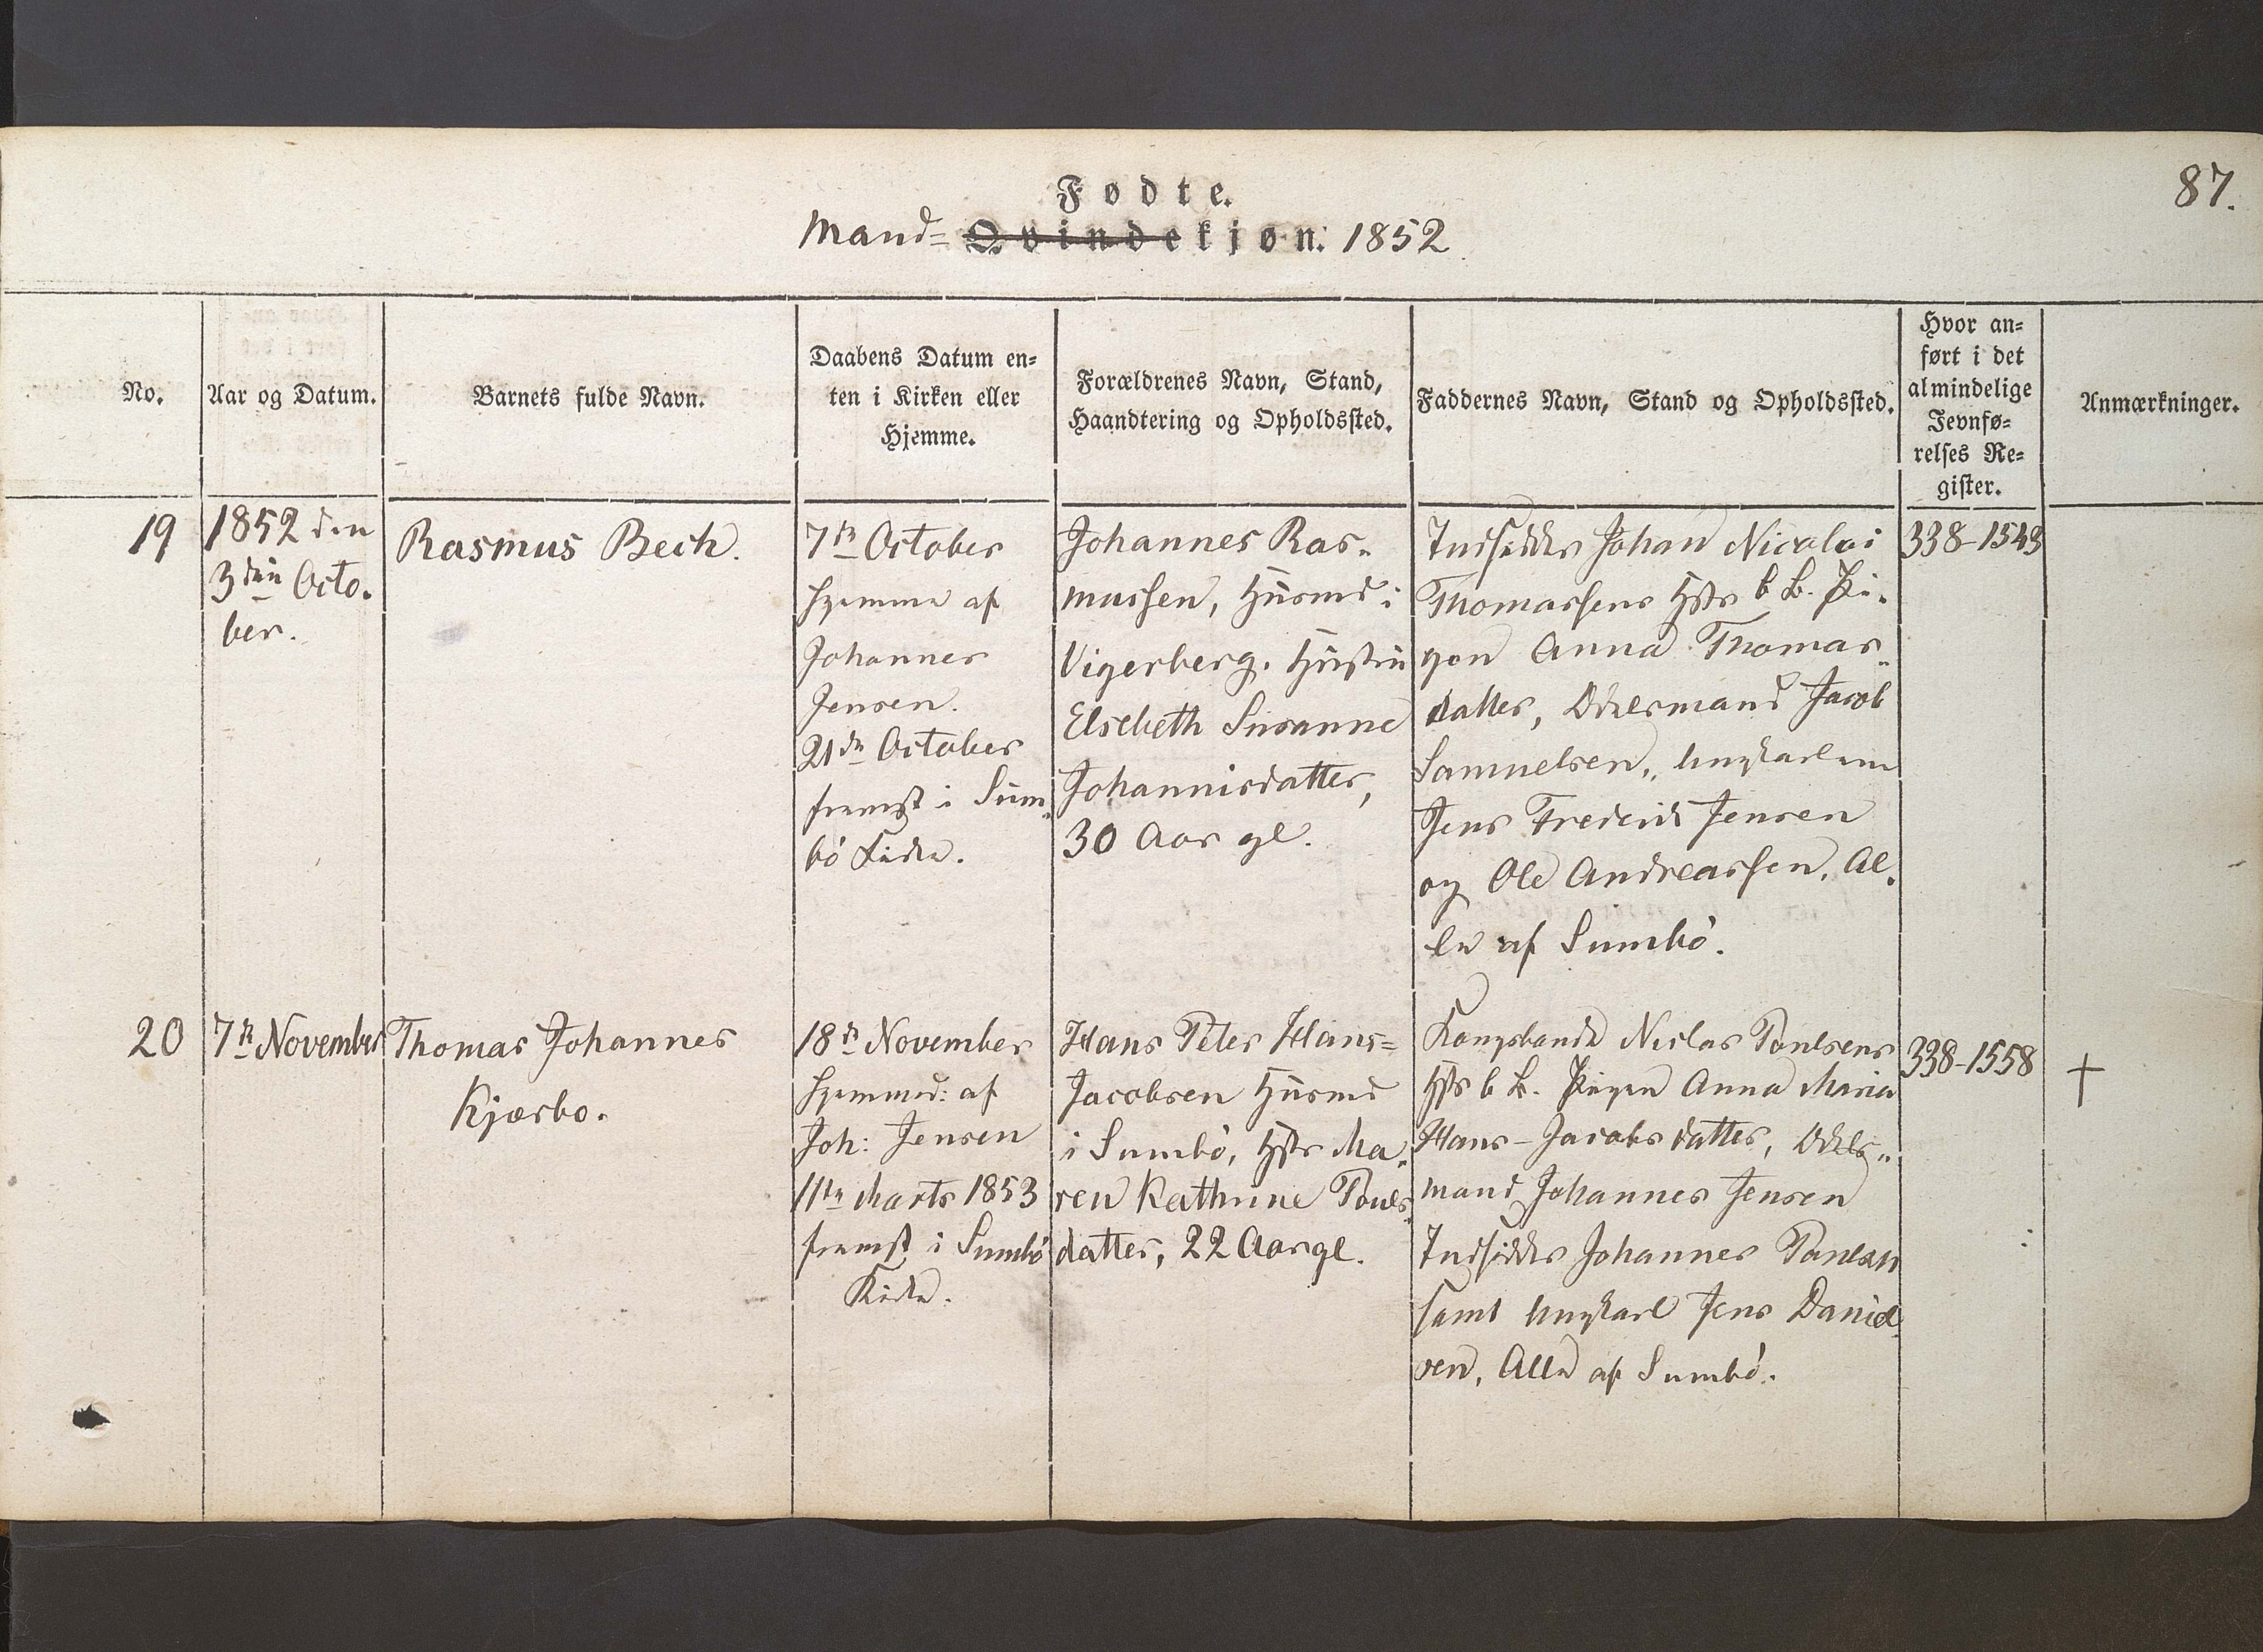 87.
Fødte.
Mand= Qvindekjøn: 1852
No.
Aar og Datum.
Barnets fulde Navn.
Daabens Datum en=
ten i Kirken eller
Hjemme.
Forældrenes Navn, Stand,
Haandtering og Opholdssted.
Faddernes Navn, Stand og Opholdssted.
Hvor an=
ført i det
almindelige
Jevnfø=
relses Re=
gister.
Anmærkninger.
19
1852 den
3die Octo.
ber.
Rasmus Bech.
7de October
hjemme af
Johannes
Jensen.
21de October
fremst i Sum„
bö Kirke.
Johannes Ras„
mussen, Huusmd i
Vigerberg. Hustru
Elsebeth Susanne
Johannisdatter,
30 Aar gl.
Indsidder Johan Nicolai
Thomassens Hstr b B. Pi„
gen Anna Thomas„
datter, Odelsmand Jacob
Samuelsen, Ungkarlene
Jens Frederik Jensen
og Ole Andreassen. Al„
le af Sumbö.
338-1549
20
7de November
Thomas Johannes
Kjærbo.
18de November
hjemmed: af
Joh: Jensen
11te Marts 1853
fremst i Sumbö
Kirke.
Hans Peter Hans=
Jacobsen Huusmd
i Sumbö, Hstr Ma„
ren Kathrine Pouls„
datter, 22 Aar gl.
Kongsbonde Niclas Poulsens
Hstr b B. Pigen Anna Maria
Hans-Jacobsdatter, Odels„
mand Johannes Jensen
Indsidder Johannes Poulsen
samt Ungkarl Jens Daniel„
sen, Alle af Sumbö.
338-1558
+